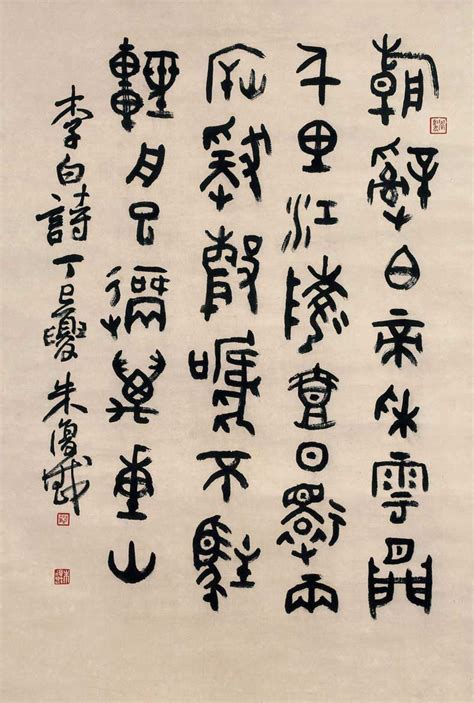 朝辭白帝采雲間
千里江陵壹日還兩
岸猿聲啼不駐
輕舟已過萬重山
李白詩丁巳夏朱復戡